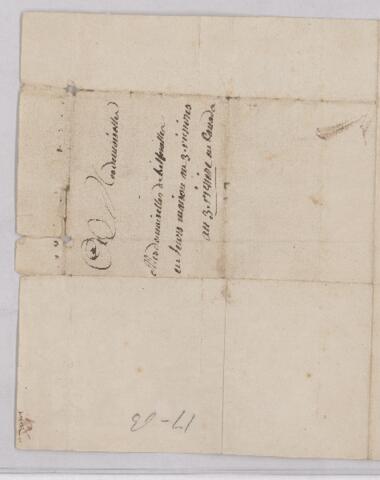 A Mesdemoiselles
Mesdemoiselles de
en leurs maison au 3. rivieres
au 3. riviere en Canada
17-63